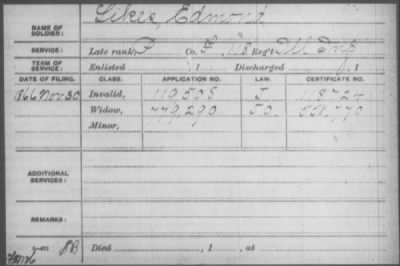 NAME OF SOLDIER: Likes, Edmond
SERVICE: Late rank, P Co. G, 118 Reg't Ill Inf
TERM OF SERVICE: Enlisted , 1 Discharged , 1
DATE OF FILING. CLASS. APPLICATION NO. LAW. CERTIFICATE NO.
1866 Nov. 30 Invalid, 119,508
Widow, 779,290 558,770
Minor,
ADDITIONAL SERVICES:
REMARKS:
Died , 1 , at